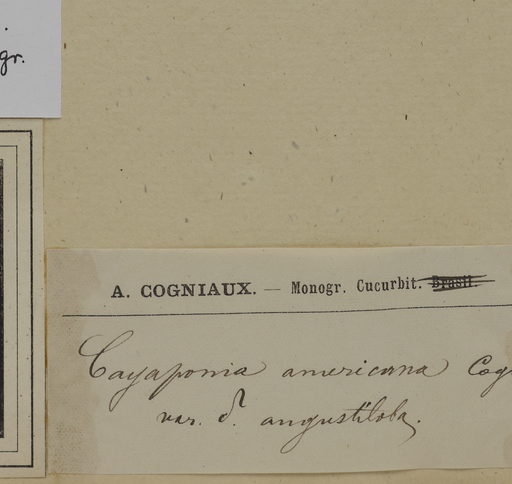 gr.
A. COGNIAUX. — Monogr. Cucurbit. Brasil.
Cayaponia americana Cog
var. δ. angustiloba.